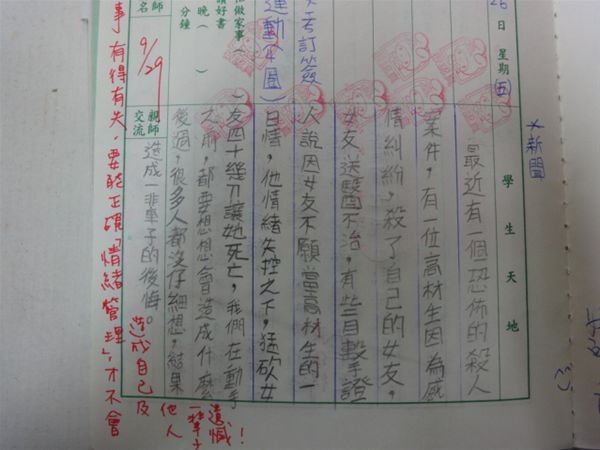 26日 星期(五)
學生天地
*新聞
最近有一個恐怖的殺人
案件，有一位高材生因為感
情糾紛，殺了自己的女友，
女友送醫不治，有些目擊手證
人說因女友不願當高材生的一
日情，他情緒失控之下，猛砍女
友四十幾刀讓她死亡，我們在動手
之前，都要想想會造成什麼
後過，很多人都沒仔細想，結果
造成一非車子的後悔。
運動(4圈)
做家事(
讀好書
晚( )
分鐘
名師
9/29
親師交流
事有得有失，要能正確「情緒管理」，才不會
造成自己及
他人
一輩子
遺憾！